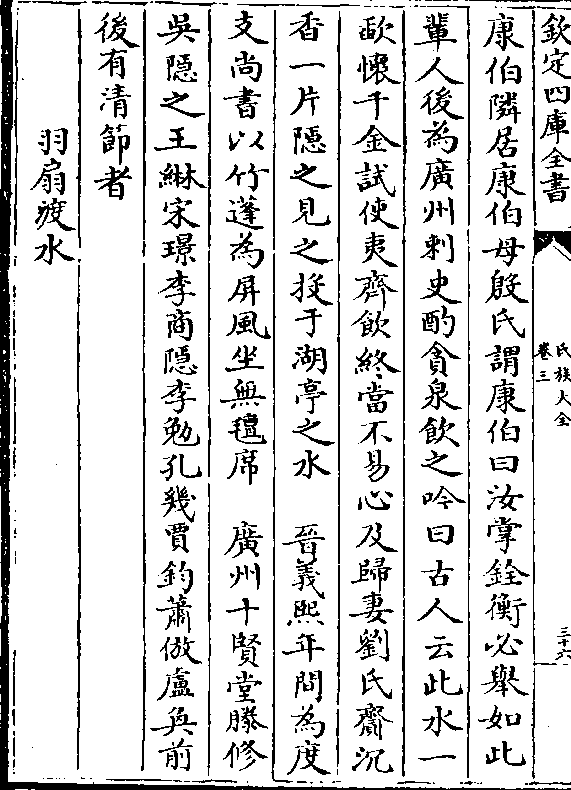 欽定四庫全書
氏族大全
卷三
三十六
康伯隣居康伯母殷氏謂康伯曰汝掌銓衡必舉如此
輩人後為廣州刺史酌貪泉飲之吟曰古人云此水一
歃懷千金試使夷齊飲終當不易心及歸妻劉氏齎沉
香一片隠之見之投于湖亭之水 晉義熈年間為度
支尚書以竹篷為屏風坐無氊席 廣州十賢堂滕修
吳隠之王綝宋璟李商隠李勉孔戣賈鈞蕭倣盧奐前
後有清節者
羽扇渡水